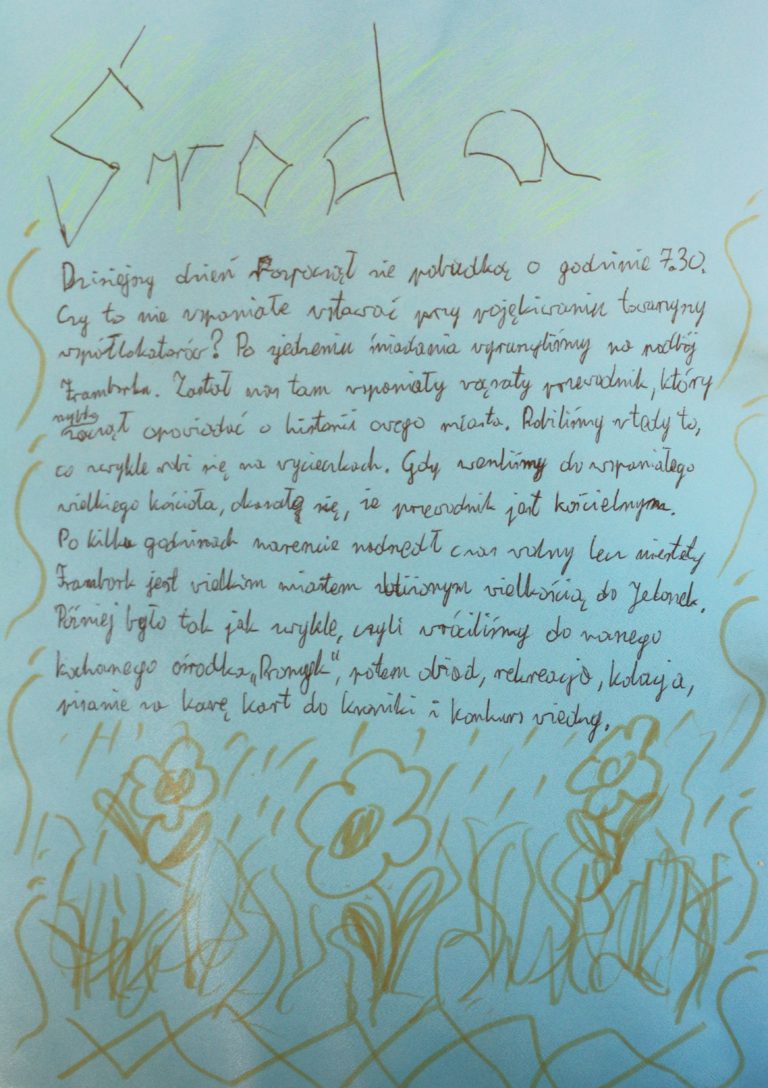 Środa
Dzisiejszy dzień Rozpoczął się pobudką o godzinie 7.30.
Czy to nie wspaniałe wstawać przy pojękiwaniu towarzyszy
współlokatorów? Po zjedzeniu śniadania wyruszyliśmy na podbój
Framborka. Zastał nas tam wspaniały wąsaty przewodnik, który
szybko
zaczął opowiadać o historii owego miasta. Robiliśmy wtedy to,
co zwykle robi się na wycieczkach. Gdy weszliśmy do wspaniałego
wielkiego kościoła, okazało się, że przewodnik jest kościelnym.
Po kilku godzinach nareszcie nadszedł czas wolny lecz niestety
Frambork jest wielkim miastem zbliżonym wielkością do Jelonek.
Później było tak jak zwykle, czyli wróciliśmy do naszego
kochanego ośrodka „Promyk", potem obiad, rekreacja, kolacja,
pisanie na karę kart do kroniki i konkurs wiedzy.